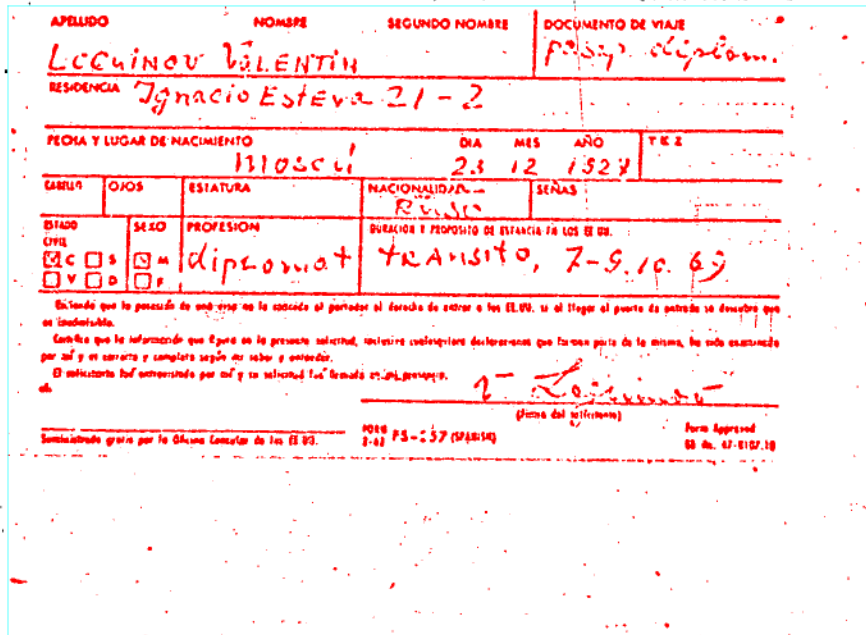 APELLIDO NOMBRE SEGUNDO NOMBRE DOCUMENTO DE VIAJE
LOGUINOV VALENTIN pasap. diplom.
RESIDENCIA Ignacio Esteva 21-2
FECHA Y LUGAR DE NACIMIENTO DIA MES AÑO
Moscú 23 12 1927
CABELLO OJOS ESTATURA NACIONALIDAD SEÑAS
Ruso
ESTADO CIVIL SEXO PROFESION DURACION Y PROPOSITO DE ESTANCIA EN LOS EE.UU.
C S M diplomat tRANSITO, 7-9.10.69
V D F
Entiendo que la posesión de una visa no le concede al portador el derecho de entrar a los EE.UU. si al llegar al puerto de entrada se descubre que
es inadmisible.
Certifico que la información que figura en la presente solicitud, inclusive cualesquiera declaraciones que forman parte de la misma, ha sido examinada
por mí y es correcta y completa según mi saber y entender.
El solicitante fué entrevistado por mí y su solicitud fué firmada en mi presencia.
(Firma del solicitante)
Suministrado gratis por la Oficina Consular de los EE.UU. FORM 2-62 FS-257 (SPANISH) Form Approved